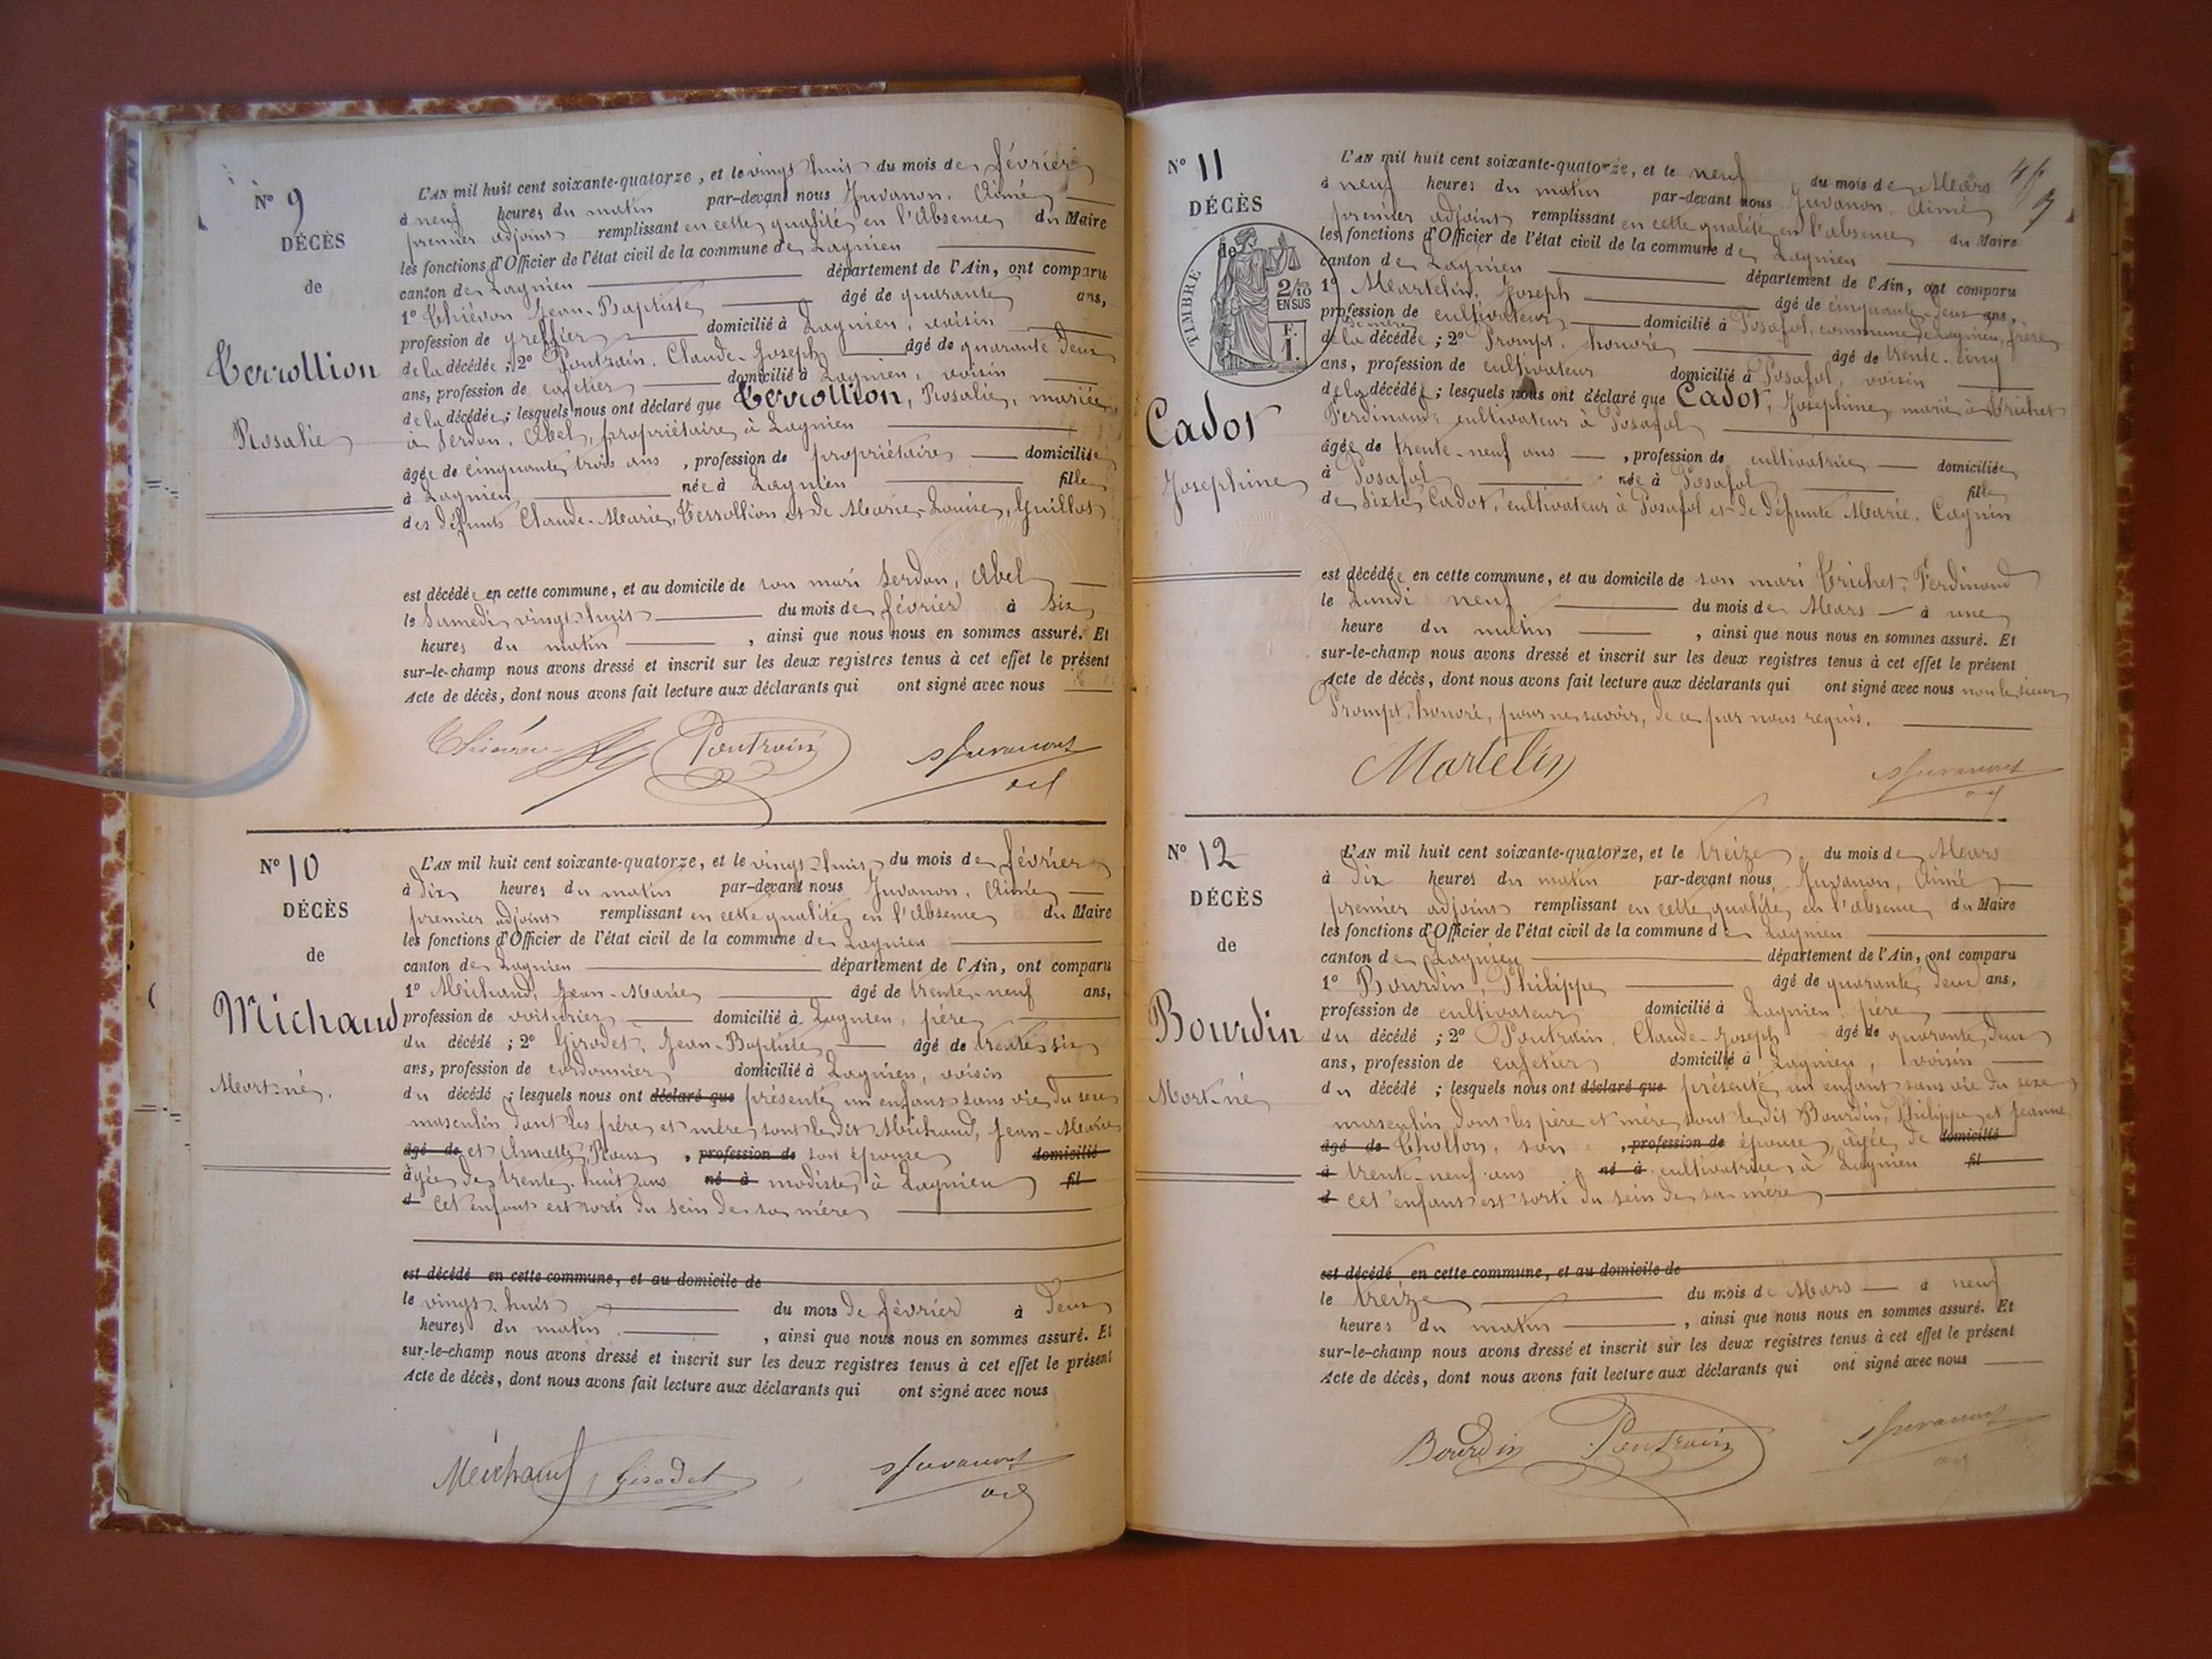 N° 9
DÉCÈS
de
Terrollion
Rosalie
L'AN mil huit cent soixante-quatorze, et le vingt huit du mois de février
à neuf heures du matin par-devant nous Juvanon, Aimé
premier adjoint remplissant en cette qualité, en l'Absence du Maire
les fonctions d'Officier de l'état civil de la commune de Lagnieu
canton de Lagnieu département de l'Ain, ont comparu
1° Thiévon Jean-Baptiste âgé de quarante ans,
profession de greffier domicilié à Lagnieu, voisin
de la décédée ; 2° Poutrain, Claude-Joseph âgé de quarante deux
ans, profession de cafetier domicilié à Lagnieu, voisin
de la décédée ; lesquels nous ont déclaré que Terrollion, Rosalie, mariée
à Serdon, Abel, propriétaire à Lagnieu
âgée de cinquante trois ans , profession de propriétaire domiciliée
à Lagnieu née à Lagnieu fille
des défunts Claude-Marie, Terrollion et de Marie-Louise, Guillot
est décédée en cette commune, et au domicile de son mari Serdon, Abel
le Samedi vingt-huit du mois de février à six
heures du matin , ainsi que nous nous en sommes assuré. Et
sur-le-champ nous avons dressé et inscrit sur les deux registres tenus à cet effet le présent
Acte de décès, dont nous avons fait lecture aux déclarants qui ont signé avec nous
Poutrain Juvanon
adj
N° 10
DÉCÈS
de
Michaud
Mort-né.
L'AN mil huit cent soixante-quatorze, et le vingt-huit du mois de février
à dix heures du matin par-devant nous Juvanon, Aimé
premier adjoint remplissant en cette qualité, en l'Absence du Maire
les fonctions d'Officier de l'état civil de la commune de Lagnieu
canton de Lagnieu département de l'Ain, ont comparu
1° Michaud, Jean-Marie âgé de trente-neuf ans,
profession de voiturier domicilié à Lagnieu, père
du décédé ; 2° Girodet, Jean-Baptiste âgé de trente six
ans, profession de cordonnier domicilié à Lagnieu, voisin
du décédé ; lesquels nous ont déclaré que présenté un enfant sans vie du sexe
masculin dont les père et mère sont le dit Michaud, Jean-Marie
âgé de et Annette, Roux , profession de son épouse domicilié
âgée de trente-huit ans né à modiste à Lagnieu fil
d cet enfant est sorti du sein de sa mère
est décédé en cette commune, et au domicile de
le vingt-huit du mois de février à deux
heures du matin , ainsi que nous nous en sommes assuré. Et
sur-le-champ nous avons dressé et inscrit sur les deux registres tenus à cet effet le présent
Acte de décès, dont nous avons fait lecture aux déclarants qui ont signé avec nous
Michaud Girodet Juvanon
adj
N° 11
DÉCÈS
de
TIMBRE
2/10
EN SUS
F.
1.
Cador
Josephine
L'AN mil huit cent soixante-quatorze, et le neuf du mois de Mars
à neuf heures du matin par-devant nous Juvanon, Aimé
premier adjoint remplissant en cette qualité, en l'absence du Maire
les fonctions d'Officier de l'état civil de la commune de Lagnieu
canton de Lagnieu département de l'Ain, ont comparu
1° Martelin, Joseph âgé de cinquante-deux ans,
profession de cultivateur domicilié à Posafol, commune de Lagnieu, frère
de la décédée ; 2° Prompt, honoré âgé de trente-cinq
ans, profession de cultivateur domicilié à Posafol, voisin
de la décédée ; lesquels nous ont déclaré que Cador, Josephine, mariée à Trichet
Ferdinand, cultivateur à Posafol
âgée de trente-neuf ans , profession de cultivatrice domiciliée
à Posafol née à Posafol fille
de Sixte, Cador, cultivateur à Posafol et de défunte Marie, Cagnin
est décédée en cette commune, et au domicile de son mari Trichet, Ferdinand
le Lundi neuf du mois de Mars à une
heure du matin , ainsi que nous nous en sommes assuré. Et
sur-le-champ nous avons dressé et inscrit sur les deux registres tenus à cet effet le présent
Acte de décès, dont nous avons fait lecture aux déclarants qui ont signé avec nous non le sieur
Prompt, honoré, pour ne savoir, de ce par nous requis.
Martelin Juvanon
adj
N° 12
DÉCÈS
de
Bourdin
Mort-né
L'AN mil huit cent soixante-quatorze, et le treize du mois de Mars
à dix heures du matin par-devant nous Juvanon, Aimé
premier adjoint remplissant en cette qualité, en l'absence du Maire
les fonctions d'Officier de l'état civil de la commune de Lagnieu
canton de Lagnieu département de l'Ain, ont comparu
1° Bourdin, Philippe âgé de quarante deux ans,
profession de cultivateur domicilié à Lagnieu, père
du décédé ; 2° Poutrain, Claude-Joseph âgé de quarante deux
ans, profession de cafetier domicilié à Lagnieu, voisin
du décédé ; lesquels nous ont déclaré que présenté un enfant sans vie du sexe
masculin dont les père et mère sont le dit Bourdin, Philippe et Jeanne
âgé de Chollon, son , profession de épouse, âgée de domicilié
à trente-neuf ans né à cultivatrice à Lagnieu fil
d cet enfant est sorti du sein de sa mère
est décédé en cette commune, et au domicile de
le treize du mois de Mars à neuf
heures du matin , ainsi que nous nous en sommes assuré. Et
sur-le-champ nous avons dressé et inscrit sur les deux registres tenus à cet effet le présent
Acte de décès, dont nous avons fait lecture aux déclarants qui ont signé avec nous
Bourdin Poutrain Juvanon
adj